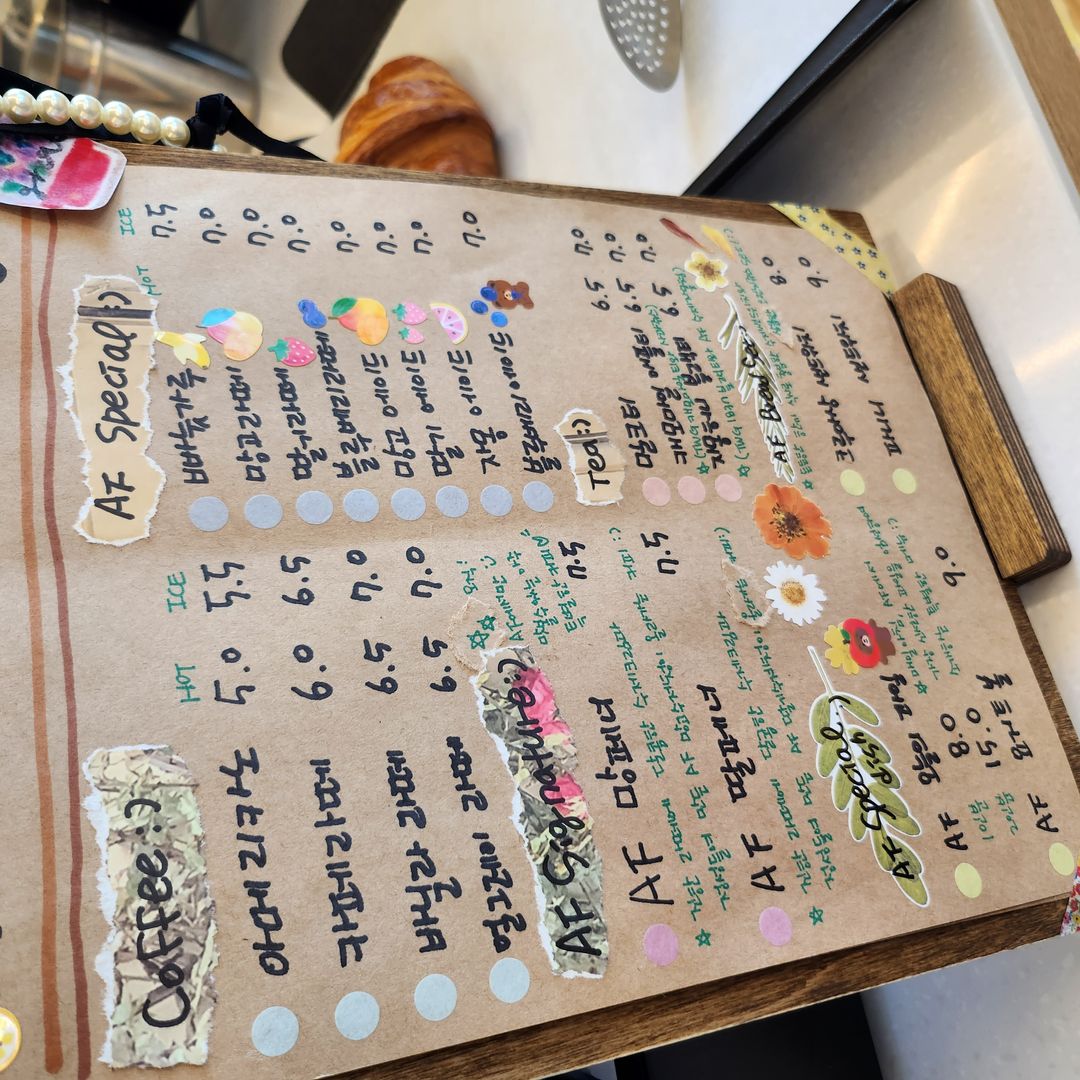 Coffee :)
HOT ICE
아메리카노 5.0 5.5
카페라떼 6.0 6.5
바닐라 라떼 6.5 7.0
얼그레이 라떼 6.5 7.0
AF Signature :)
오직!
AF에서만
맛볼수있는 아주
특별한 커피♡
AF 망페너 7.5
☆ 진한 라떼에 달콤한 수제크림과
정성들여 만든 AF 망고수제청이 올라가는 커피 :)
AF 딸페너 7.5
☆ 진한 라떼에 달콤한 수제크림과
정성들여 만든 AF 딸기수제청이 올라가는 커피:)
AF Special :)
dish
AF 오늘의 과일
☆ 매일아침, AF에서
가장 신선한 과일을 엄선하여
소개하는 특별한 메뉴 :)
1인분 8.0
2인분 15.0
AF 요거트 볼 9.0
AF Special :)
HOT ICE
빠놨가루 7.5
망고라떼 7.0
딸기라떼 7.0
블루베리라떼 7.0
망고 에이드 7.0
딸기 에이드 7.0
자몽 에이드 7.0
블루베리 에이드 7.0
Tea :)
밀크티 6.5 7.0
캐모마일 애플티 6.5 7.0
☆ (TWG 캐모마일 티와 사과쥬스)
자몽허니 블랙티 6.5 7.0
☆ (TWG 1837 블랙티와 AF 수제자몽청)
AF Bread Set :)
☆ 든든한 한끼 식사로 훌륭한 수제샌드위치와
SET :)
크루아상 샌드위치 8.0
파니니 샌드위치 9.0